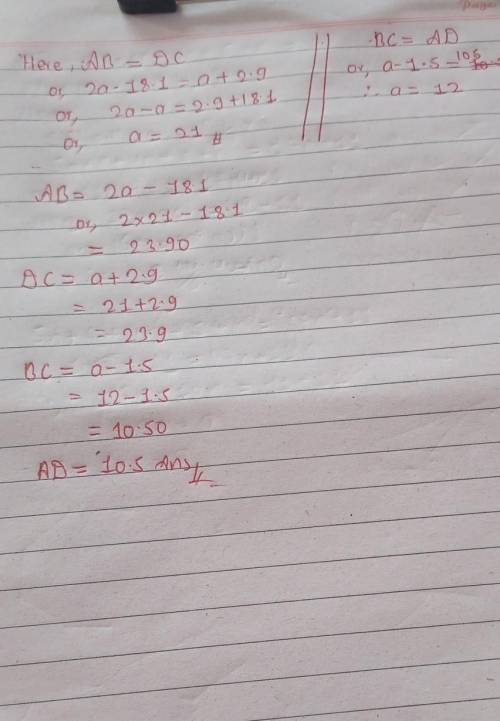 Page
Here, AB = DC
or, 2a - 18.1 = a + 2.9
or, 2a - a = 2.9 + 18.1
or, a = 21 #
BC = AD
or, a - 1.5 = 10.5
∴ a = 12
AB = 2a - 18.1
or, 2×21 - 18.1
= 23.90
DC = a + 2.9
= 21 + 2.9
= 23.9
BC = a - 1.5
= 12 - 1.5
= 10.50
AD = 10.5 Ans #